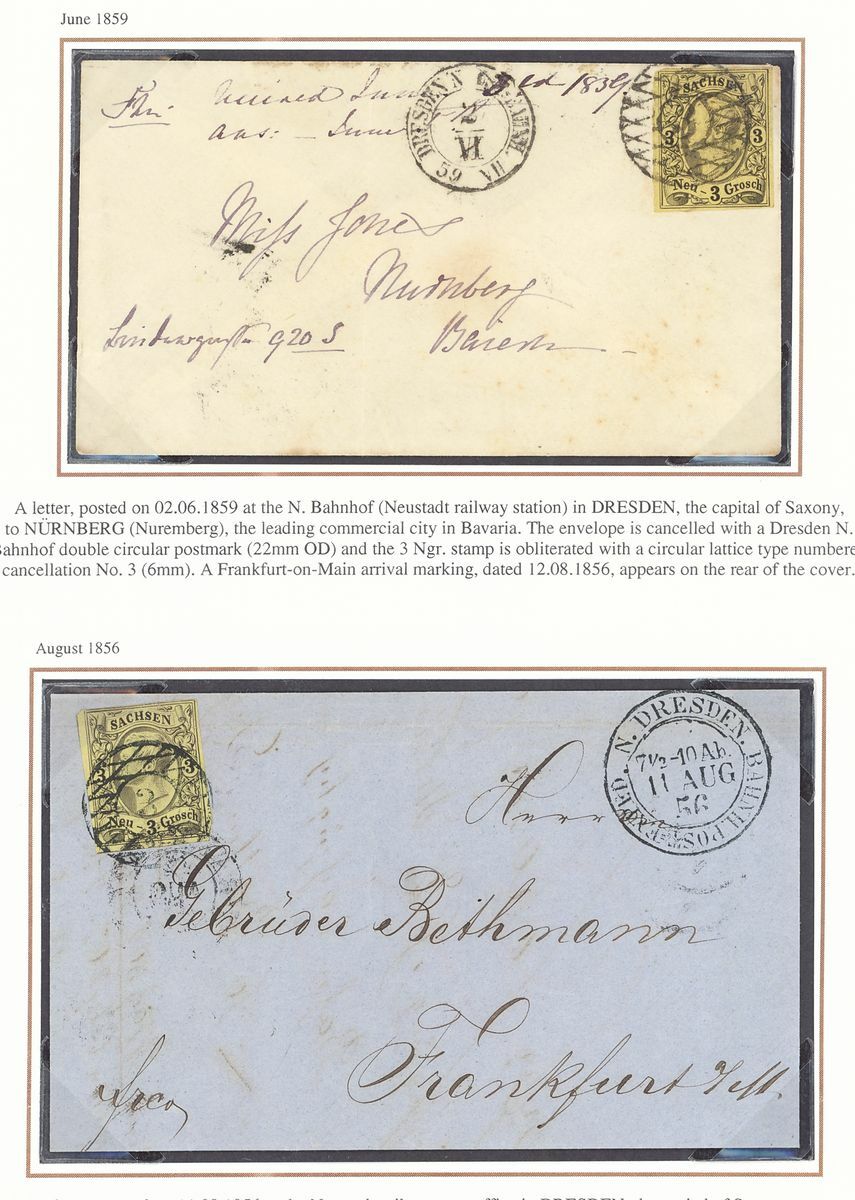 June 1859
Miss Jones
Nürnberg
920 S
Baiern
DRESDEN N. BAHNH. VII
2
VI
59
SACHSEN
3 3
Neu - 3 Grosch
A letter, posted on 02.06.1859 at the N. Bahnhof (Neustadt railway station) in DRESDEN, the capital of Saxony,
to NÜRNBERG (Nuremberg), the leading commercial city in Bavaria. The envelope is cancelled with a Dresden N.
Bahnhof double circular postmark (22mm OD) and the 3 Ngr. stamp is obliterated with a circular lattice type numbere
cancellation No. 3 (6mm). A Frankfurt-on-Main arrival marking, dated 12.08.1856, appears on the rear of the cover.
August 1856
SACHSEN
3 3
2
Neu - 3 - Grosch
N. DRESDEN. BAHNH. POST-EXPED.
7½-10 Ab.
11 AUG
56
Herren
Gebrüder Bethmann
Frankfurt a/M.
frco